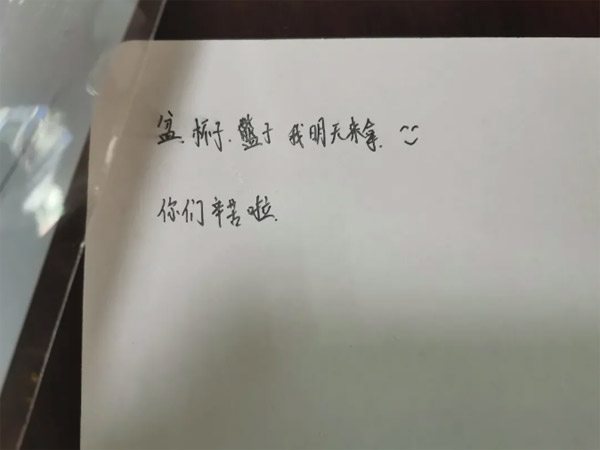 盆.柝子.盤子 我明天来拿. ^^
你们辛苦啦.